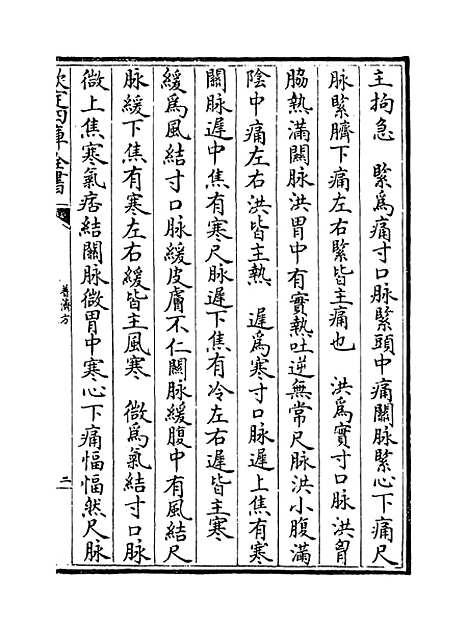 主拘急　緊為痛寸口脉緊頭中痛關脉緊心下痛尺
脉緊臍下痛左右緊皆主痛也　洪為實寸口脉洪胷
脇熱滿關脉洪胃中有實熱吐逆無常尺脉洪小腹滿
陰中痛左右洪皆主熱　遲為寒寸口脉遲上焦有寒
關脉遲中焦有寒尺脉遲下焦有冷左右遲皆主寒
緩為風結寸口脉緩皮膚不仁關脉緩腹中有風結尺
脉緩下焦有寒左右緩皆主風寒　微為氣結寸口脉
微上焦寒氣痞結關脉微胃中寒心下痛愊愊然尺脉
欽定四庫全書
普濟方
二